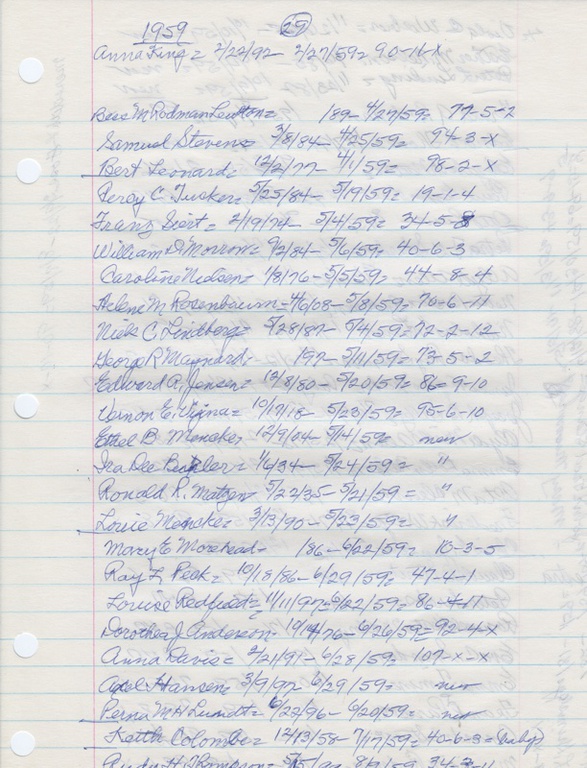 1959 29
Anna King = 2/22/92 2/27/59 = 90-16-X
Bess M Rodman Leutton = 189- 4/27/59 = 79-5-2
Samuel Stevens 3/8/84- 4/25/59 = 94-3-X
Bert Leonard = 12/2/77- 4/1/59 = 98-2-X
Percy C. Tucker = 5/25/84- 5/19/59 = 19-1-4
Franz Siert = 2/19/74- 5/4/59 = 34-5-8
William D. Morrow = 9/2/84- 5/6/59 = 40-6-3
Caroline Nielsen = 1/8/76- 5/5/59 = 44-8-4
Helene M Rosenbaum - 4/6/08- 5/8/59 = 70-6-11
Nick C Lindberg = 5/28/87- 5/4/59 = 72-2-12
George R Maynard - 197- 5/11/59 = 73-5-2
Edward A. Jensen = 12/8/80- 5/20/59 = 86-9-10
Vernon E. Vigna = 10/17/18- 5/23/59 = 95-6-10
Ethel B. Mencke 12/9/04- 5/14/59 new
Ira Dee = 1/6/34- 5/24/59 = "
Ronald R. Matzen = 5/22/35- 5/21/59 = "
Louie Mencke = 3/13/90- 5/23/59 = "
Mary E Morehead - 186- 6/22/59 = 10-3-5
Ray L Peak = 10/18/86- 6/29/59 = 47-4-1
Louise Redfield = 11/11/97- 6/22/59 = 86-4-11
Dorothea J. Anderson - 10/14/76- 6/26/59 = 92-4-X
Anna Davis = 2/21/91- 6/28/59 = 107-X-X
Axel Hansen = 3/9/97- 6/29/59 = new
Perna M H Lundt = 6/22/96- 6/20/59 = new
Keith Colombe = 12/13/58- 7/17/59 = 40-6-3 = (baby)
Thompson = 34-